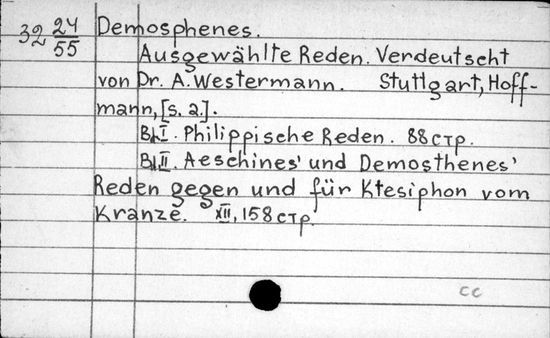 32 24/55 Demosphenes.
Ausgewählte Reden. Verdeutscht
von Dr. A. Westermann. Stuttgart, Hoff-
mann, [s. a.].
Bd. I. Philippische Reden. 88 стр.
Bd. II. Aeschines' und Demosthenes'
Reden gegen und für Ktesiphon vom
Kranze. XII, 158 стр.
cc